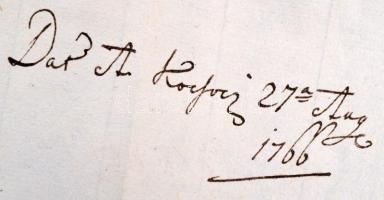 Dat A Kochocz 27a Aug
1766